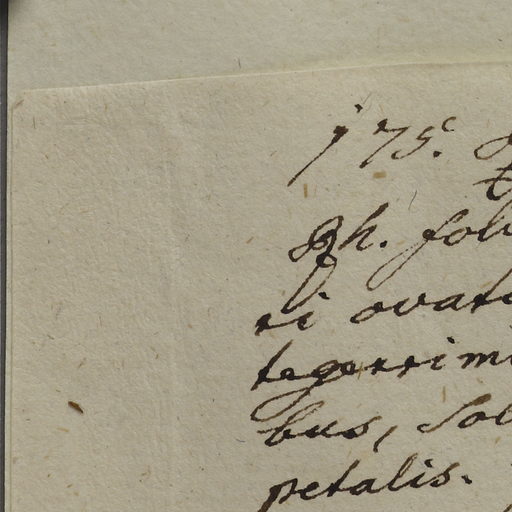 175.
Rh. foli
ri ovat
tegerrimi
bus, sol
petalis.